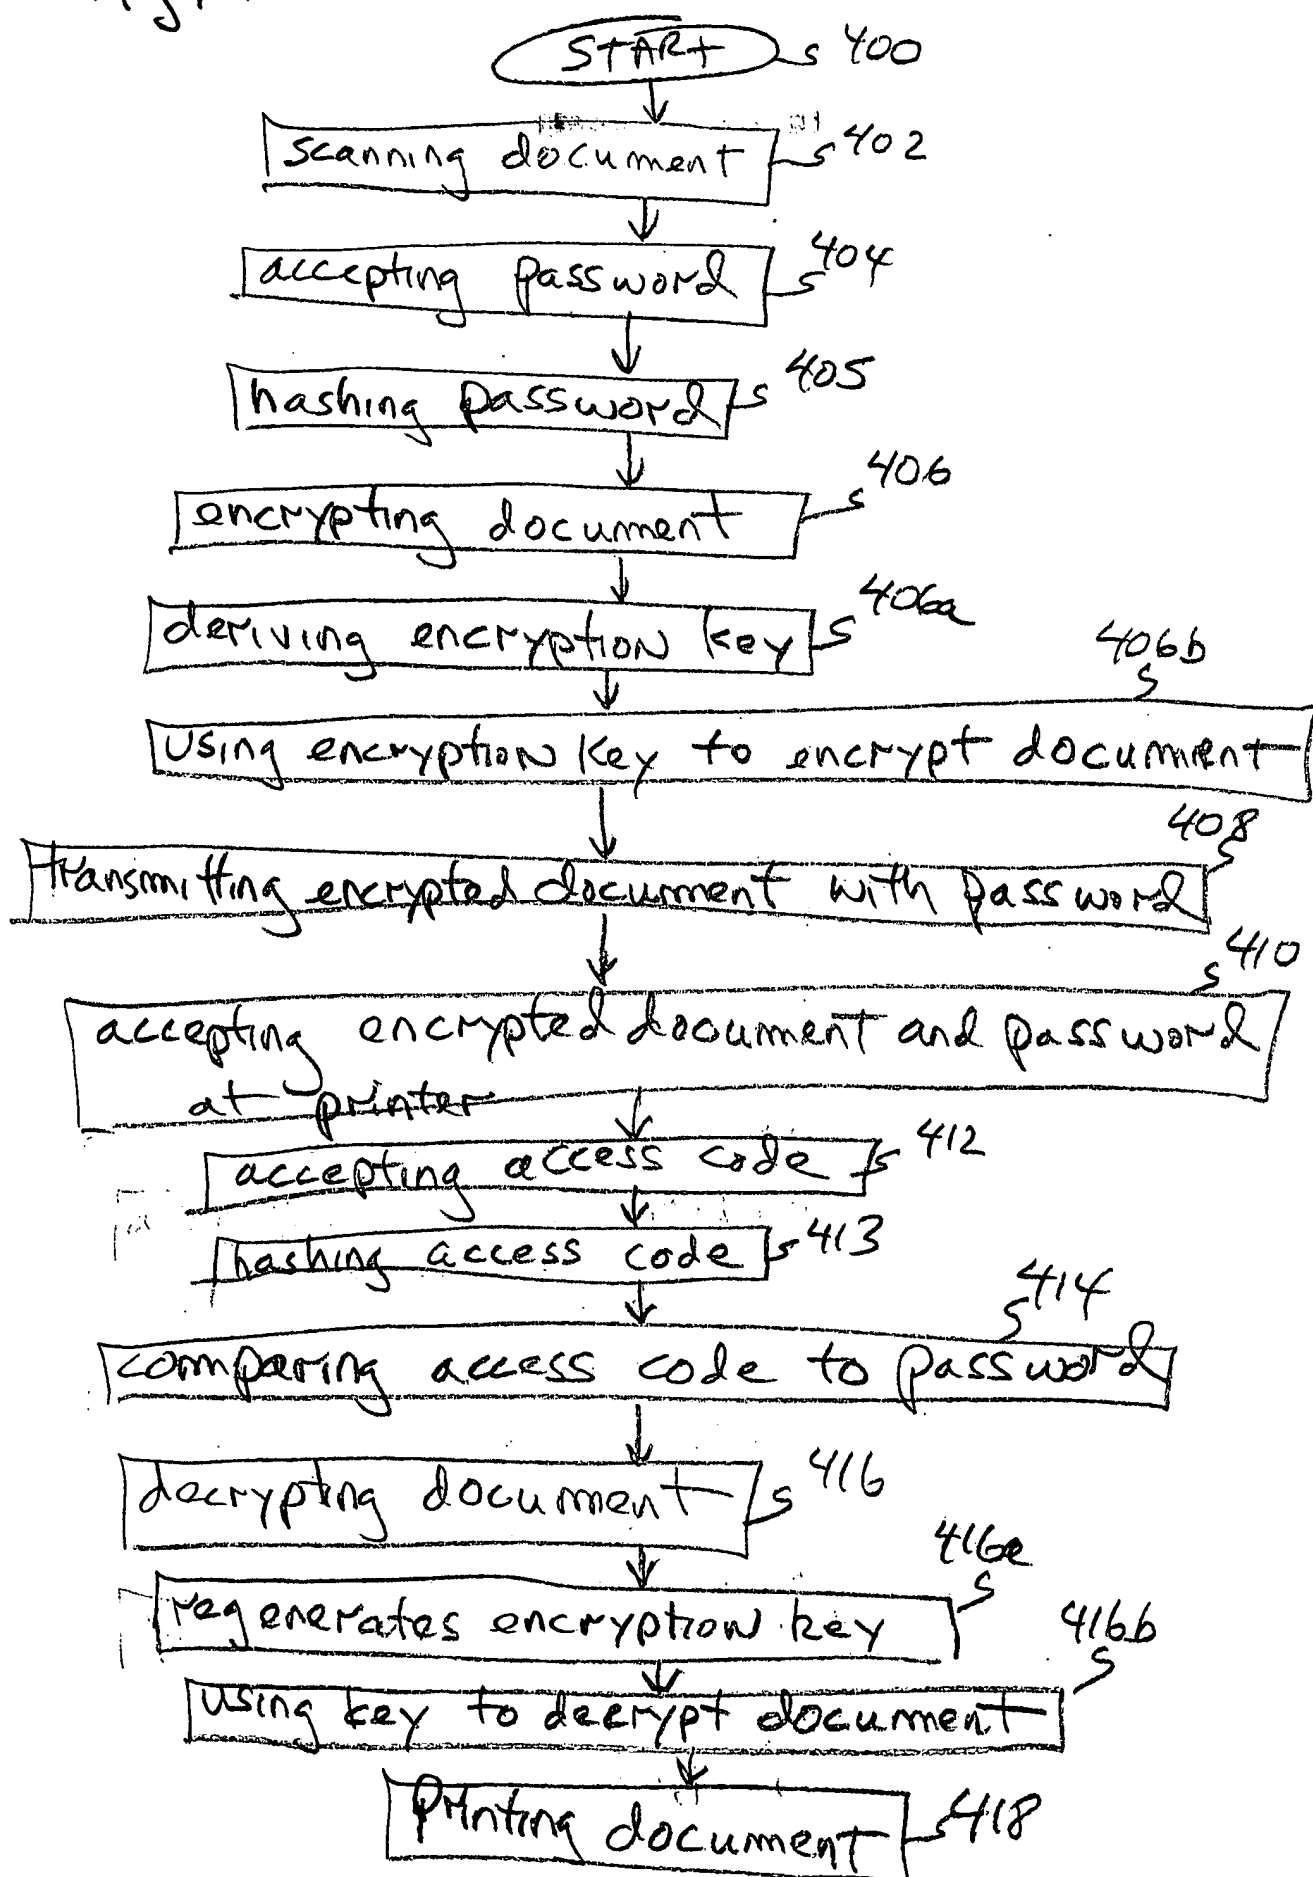 START 400
scanning document 402
accepting password 404
hashing password 405
encrypting document 406
deriving encryption key 406a
406b
using encryption key to encrypt document
408
transmitting encrypted document with password
410
accepting encrypted document and password
at printer
accepting access code 412
hashing access code 413
414
comparing access code to password
decrypting document 416
416a
regenerates encryption key
416b
using key to decrypt document
Printing document 418